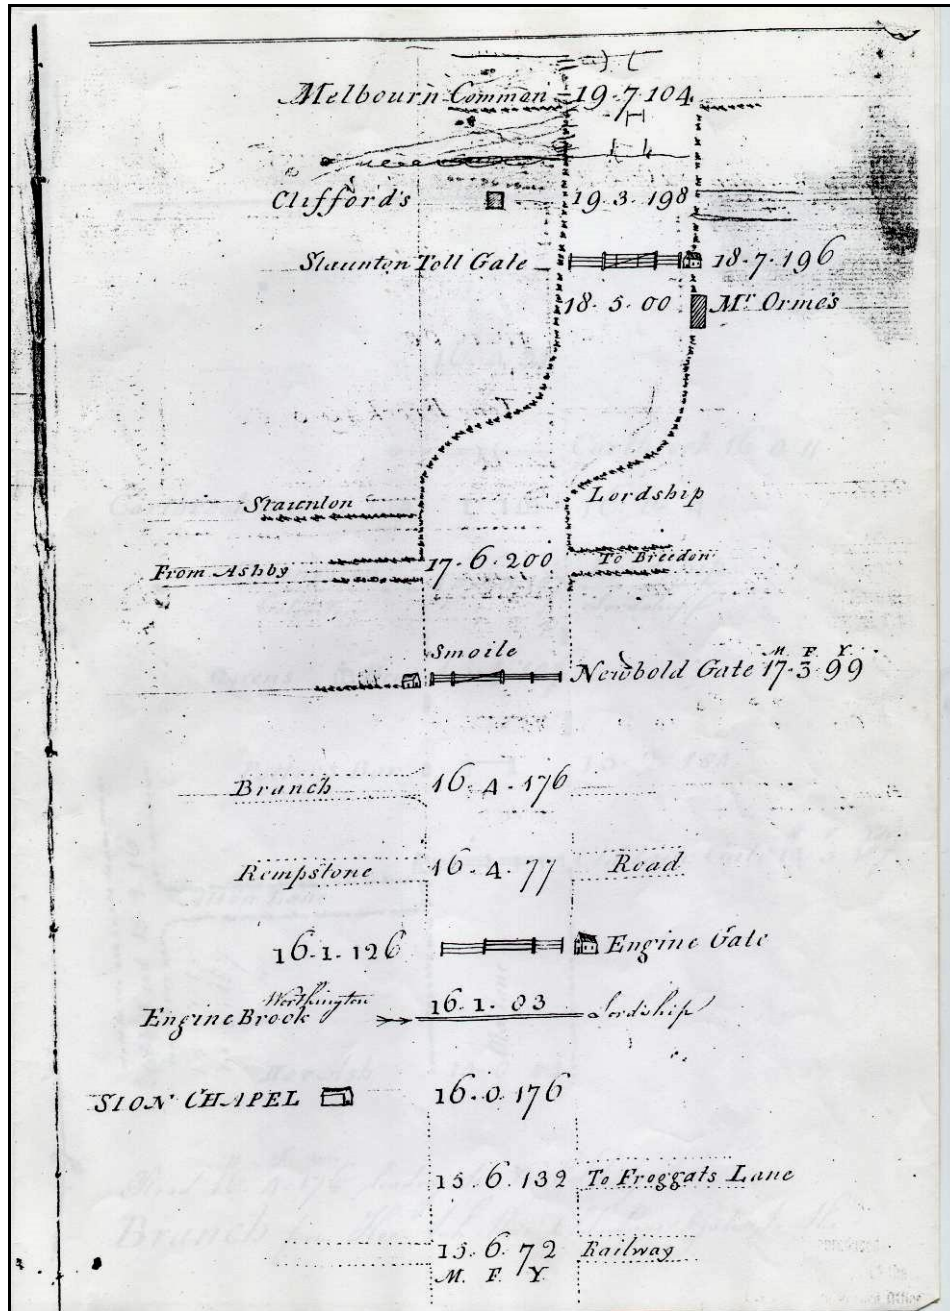 Melbourn Common 19·7·104
Clifford's 19·3·198
Staunton Toll Gate 18·7·196
18·5·00 Mr Orme's
Staunton Lordship
From Ashby 17·6·200 To Breedon
Smoile
M. F. Y.
Newbold Gate 17·3·99
Branch 16·4·176
Rempstone 16·4·77 Road
16·1·126 Engine Gate
Worthington
Engine Brook 16·1·03 Lordship
SION CHAPEL 16·0·176
15·6·132 To Froggats Lane
15·6·72 Railway
M. F. Y.